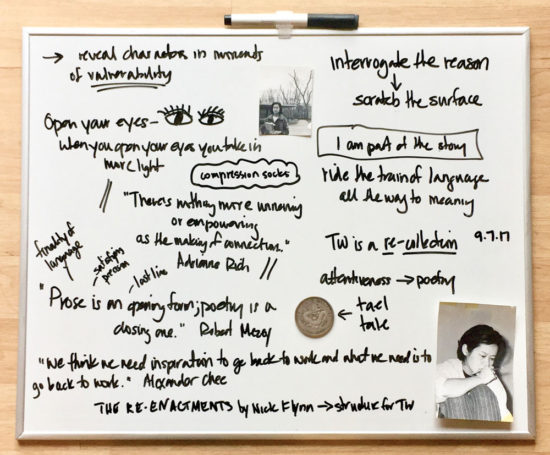 → reveal characters in moments
of vulnerability
Open your eyes —
when you open your eyes you take in
more light
compression socks
"There's nothing more unnerving
or empowering
as the making of connections."
Adrienne Rich
finality of
language
- satisfying
- last line
"Prose is an opening form; poetry is a
closing one." Robert Mezey
"We think we need inspiration to go back to work and what we need is to
go back to work." Alexander Chee
THE RE-ENACTMENTS by Nick Flynn → structure for TW
interrogate the reason
↓
scratch the surface
I am part of the story
ride the train of language
all the way to meaning
TW is a re-collection 9.7.17
attentiveness → poetry
← tael
tale